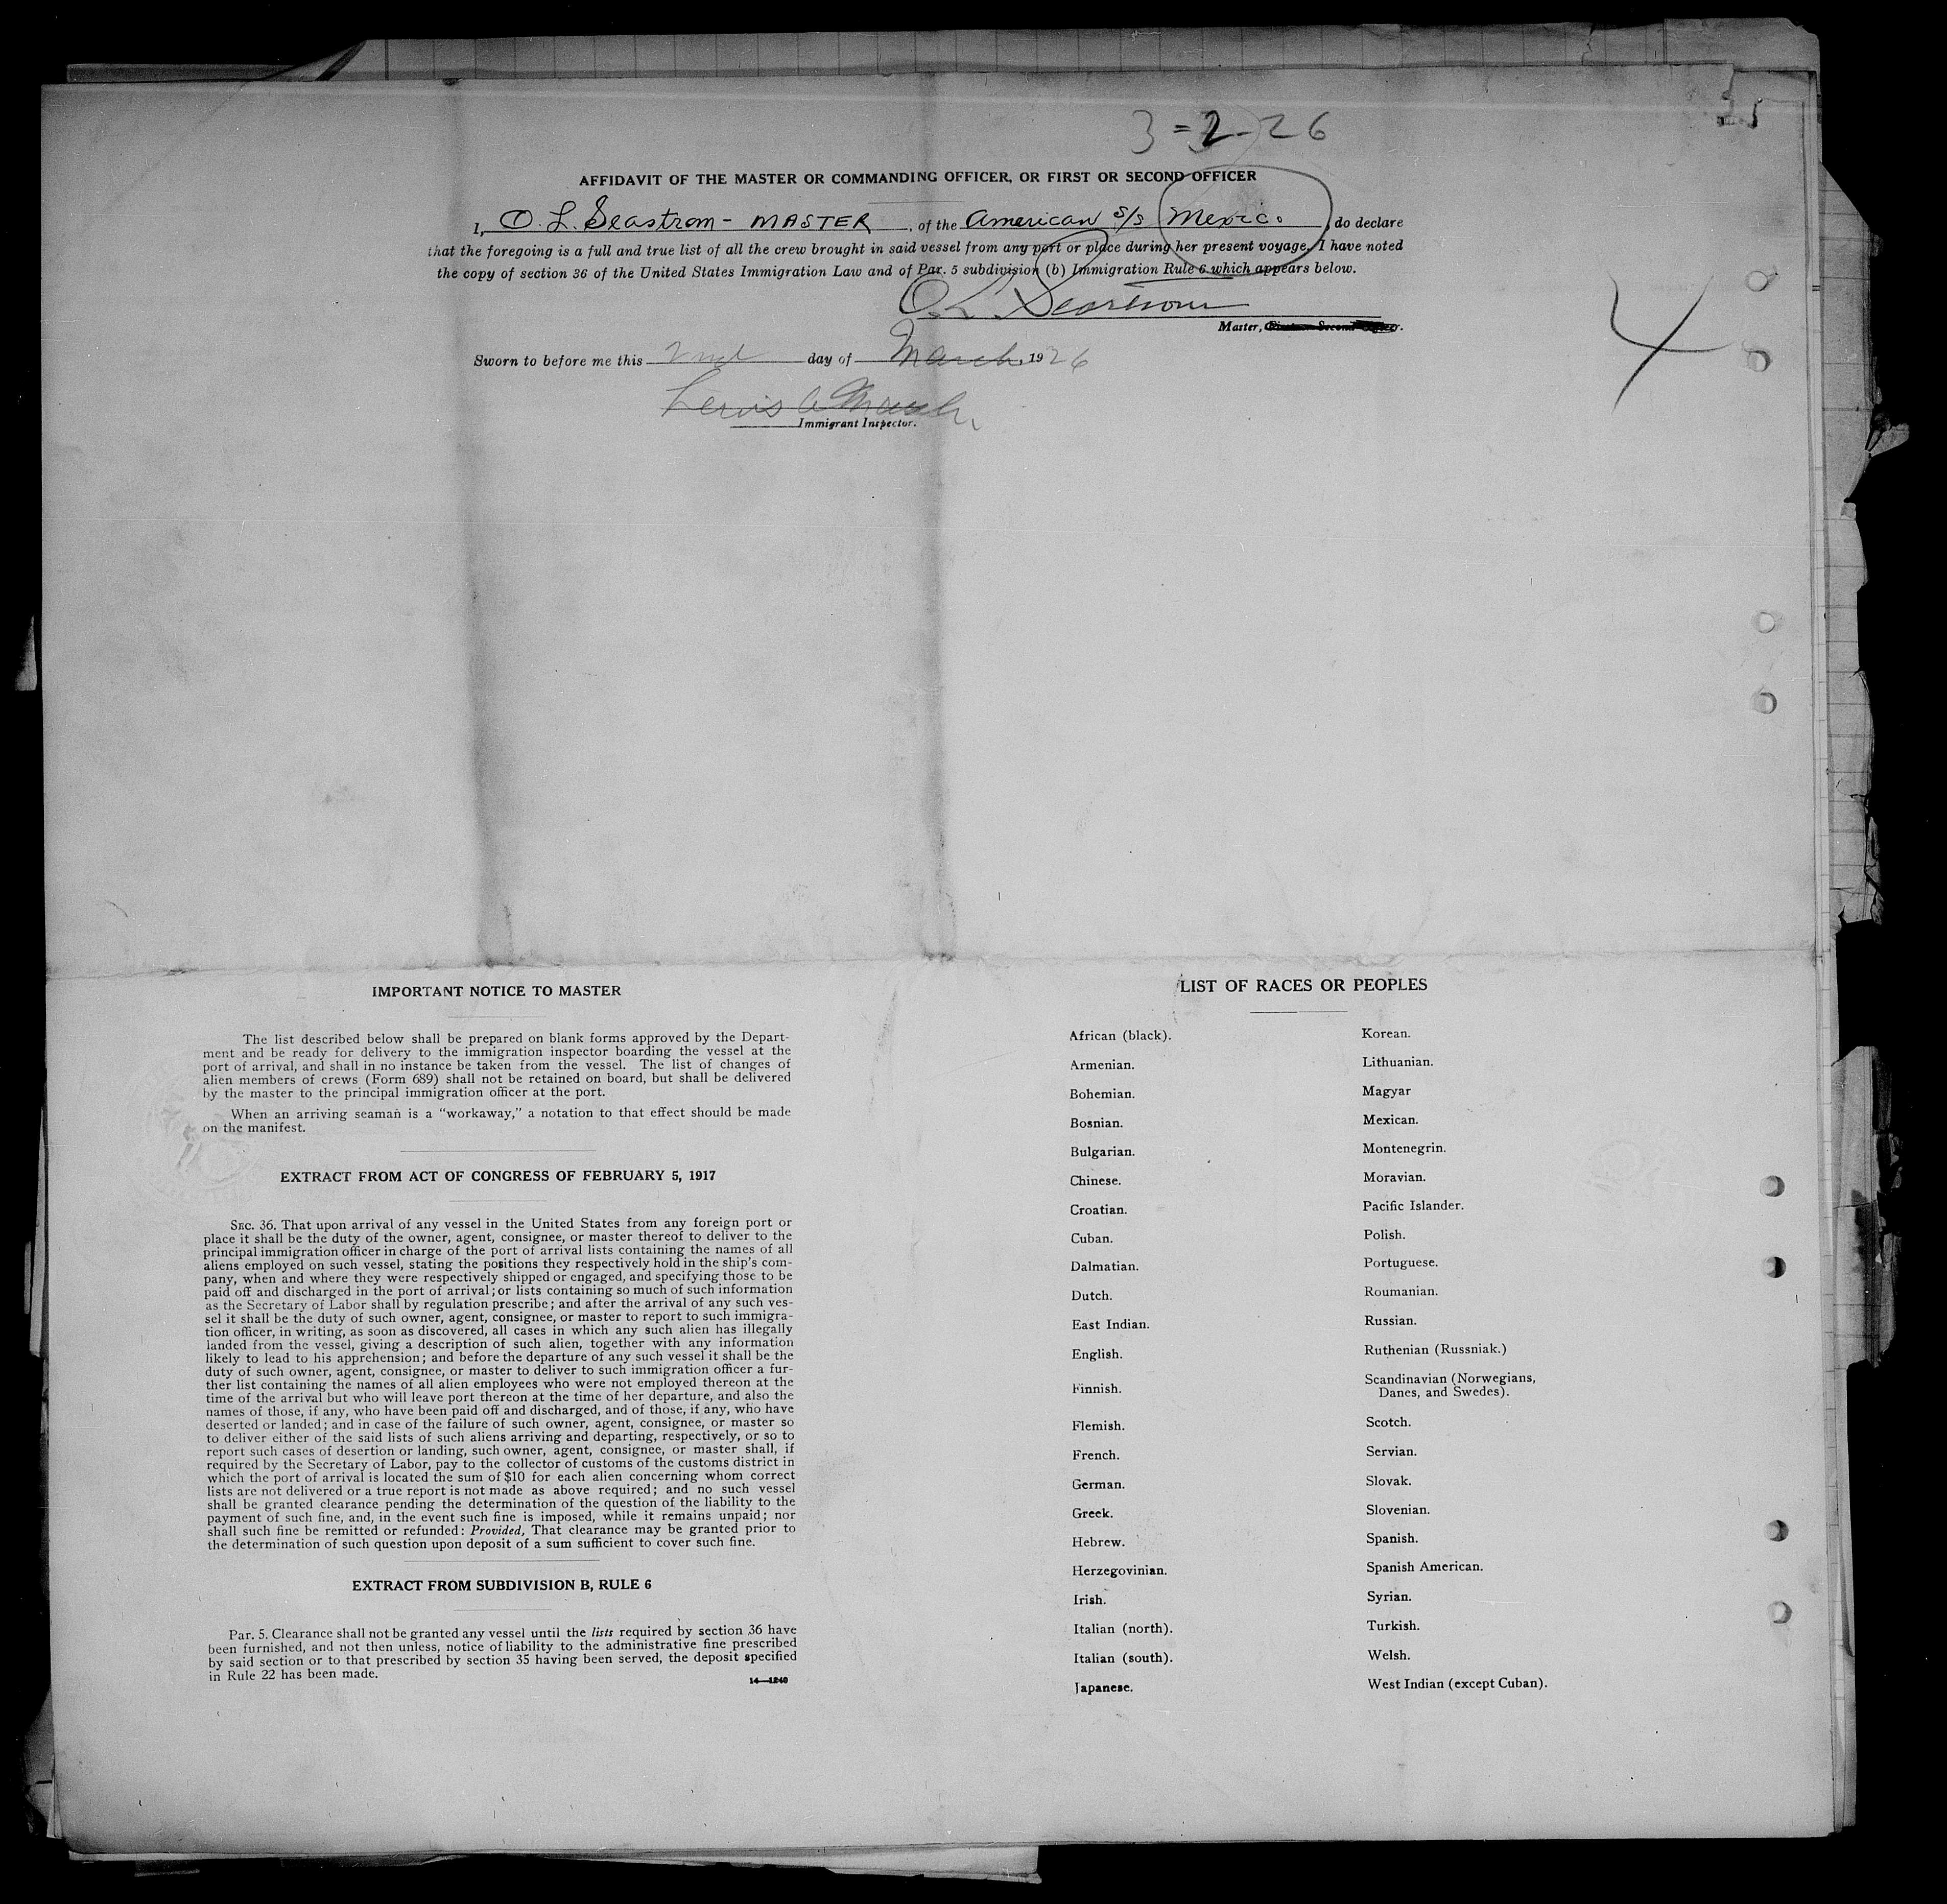 3-2-26
AFFIDAVIT OF THE MASTER OR COMMANDING OFFICER, OR FIRST OR SECOND OFFICER
I, O. L. Seastrom - MASTER, of the American S/S Mexico, do declare
that the foregoing is a full and true list of all the crew brought in said vessel from any port or place during her present voyage. I have noted
the copy of section 36 of the United States Immigration Law and of Par. 5 subdivision (b) Immigration Rule 6 which appears below.
O. L. Seastrom
Master, First or Second Officer.
4
Sworn to before me this 2nd day of March, 1926
Lewis A
Immigrant Inspector.
IMPORTANT NOTICE TO MASTER
The list described below shall be prepared on blank forms approved by the Depart-
ment and be ready for delivery to the immigration inspector boarding the vessel at the
port of arrival, and shall in no instance be taken from the vessel. The list of changes of
alien members of crews (Form 689) shall not be retained on board, but shall be delivered
by the master to the principal immigration officer at the port.
When an arriving seaman is a "workaway," a notation to that effect should be made
on the manifest.
EXTRACT FROM ACT OF CONGRESS OF FEBRUARY 5, 1917
SEC. 36. That upon arrival of any vessel in the United States from any foreign port or
place it shall be the duty of the owner, agent, consignee, or master thereof to deliver to the
principal immigration officer in charge of the port of arrival lists containing the names of all
aliens employed on such vessel, stating the positions they respectively hold in the ship's com-
pany, when and where they were respectively shipped or engaged, and specifying those to be
paid off and discharged in the port of arrival; or lists containing so much of such information
as the Secretary of Labor shall by regulation prescribe; and after the arrival of any such ves-
sel it shall be the duty of such owner, agent, consignee, or master to report to such immigra-
tion officer, in writing, as soon as discovered, all cases in which any such alien has illegally
landed from the vessel, giving a description of such alien, together with any information
likely to lead to his apprehension; and before the departure of any such vessel it shall be the
duty of such owner, agent, consignee, or master to deliver to such immigration officer a fur-
ther list containing the names of all alien employees who were not employed thereon at the
time of the arrival but who will leave port thereon at the time of her departure, and also the
names of those, if any, who have been paid off and discharged, and of those, if any, who have
deserted or landed; and in case of the failure of such owner, agent, consignee, or master so
to deliver either of the said lists of such aliens arriving and departing, respectively, or so to
report such cases of desertion or landing, such owner, agent, consignee, or master shall, if
required by the Secretary of Labor, pay to the collector of customs of the customs district in
which the port of arrival is located the sum of $10 for each alien concerning whom correct
lists are not delivered or a true report is not made as above required; and no such vessel
shall be granted clearance pending the determination of the question of the liability to the
payment of such fine, and, in the event such fine is imposed, while it remains unpaid; nor
shall such fine be remitted or refunded: Provided, That clearance may be granted prior to
the determination of such question upon deposit of a sum sufficient to cover such fine.
EXTRACT FROM SUBDIVISION B, RULE 6
Par. 5. Clearance shall not be granted any vessel until the lists required by section 36 have
been furnished, and not then unless, notice of liability to the administrative fine prescribed
by said section or to that prescribed by section 35 having been served, the deposit specified
in Rule 22 has been made.
14-1240
LIST OF RACES OR PEOPLES
African (black).
Armenian.
Bohemian.
Bosnian.
Bulgarian.
Chinese.
Croatian.
Cuban.
Dalmatian.
Dutch.
East Indian.
English.
Finnish.
Flemish.
French.
German.
Greek.
Hebrew.
Herzegovinian.
Irish.
Italian (north).
Italian (south).
Japanese.
Korean.
Lithuanian.
Magyar
Mexican.
Montenegrin.
Moravian.
Pacific Islander.
Polish.
Portuguese.
Roumanian.
Russian.
Ruthenian (Russniak.)
Scandinavian (Norwegians,
Danes, and Swedes).
Scotch.
Servian.
Slovak.
Slovenian.
Spanish.
Spanish American.
Syrian.
Turkish.
Welsh.
West Indian (except Cuban).